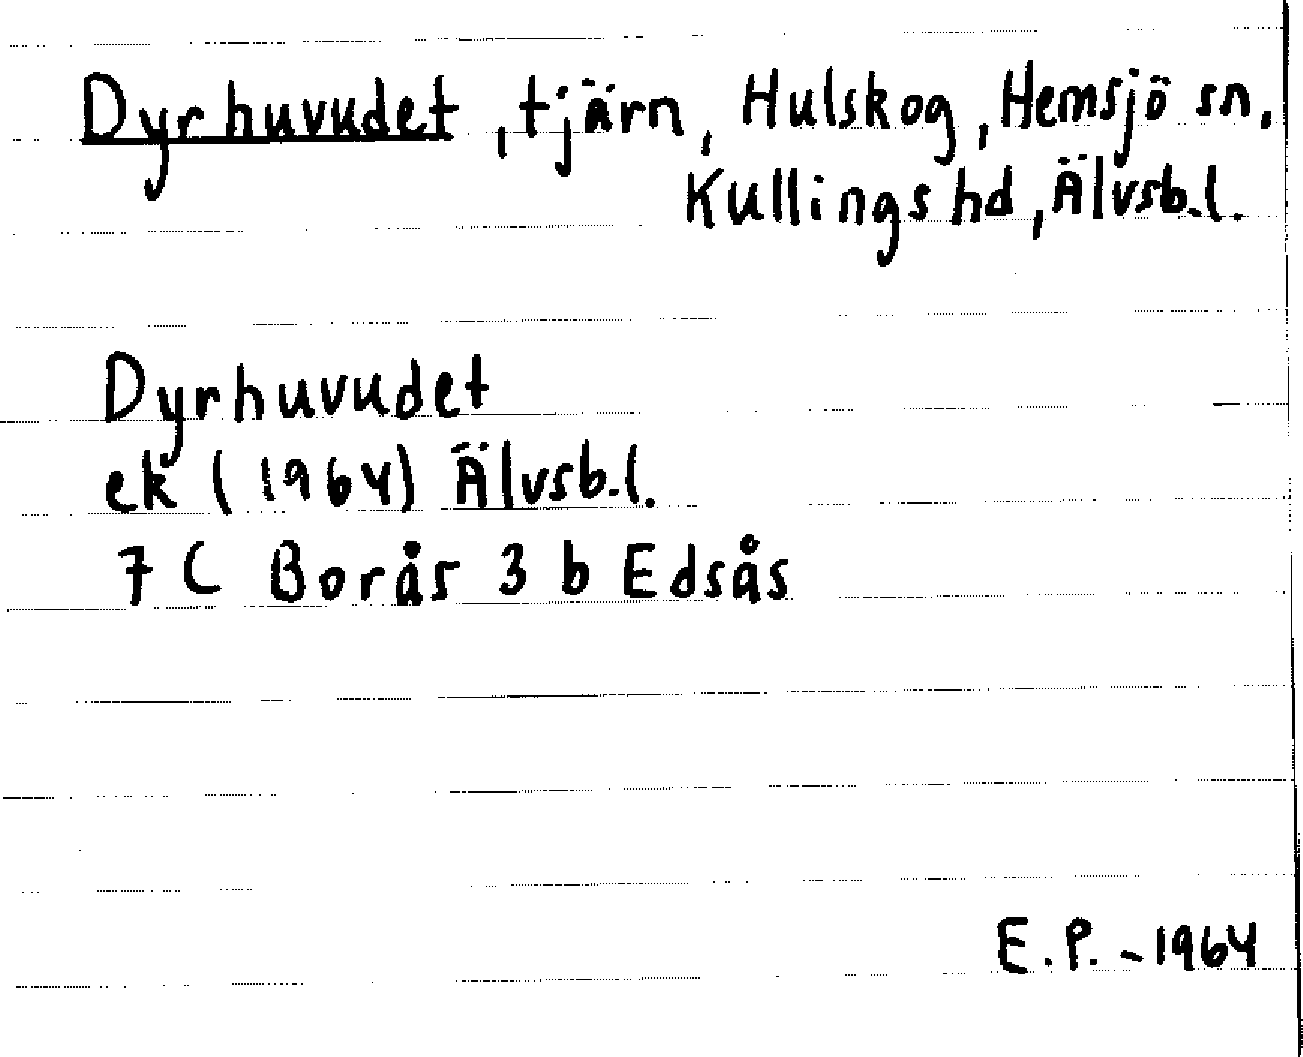 Dyrhuvudet, tjärn, Hulskog, Hemsjö sn,
Kullings hd, Älvsb.l.
Dyrhuvudet
ek (1964) Älvsb.l.
7 C Borås 3 b Edsås
E.P. - 1964